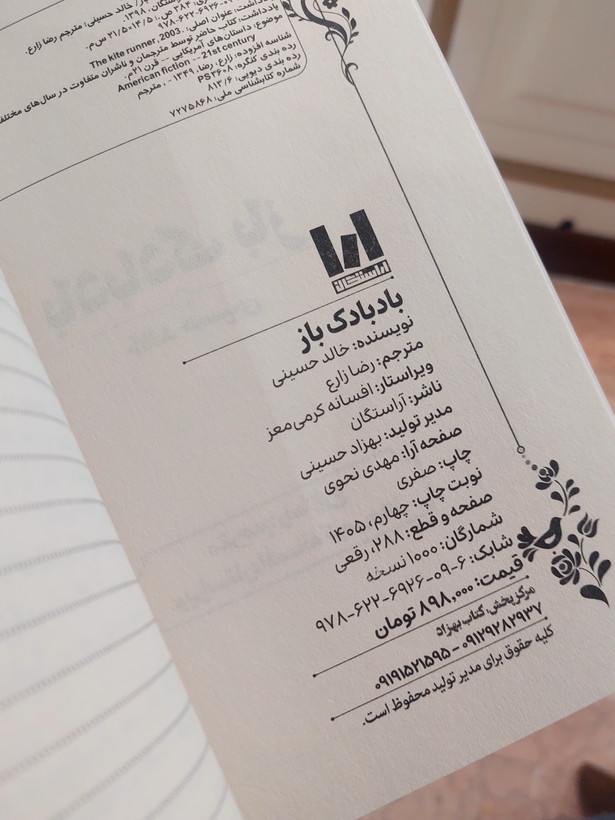 خالد حسینی؛ مترجم رضا زارع.
۱۳۹۸.
۲۸۴ ص.؛ ۱۴/۵×۲۱/۵ س‌م.
۹۷۸-۶۲۲-۶۹۲۶-
یادداشت: عنوان اصلی: The kite runner, 2003.
یادداشت: کتاب حاضر توسط مترجمان و ناشران متفاوت در سال‌های مختلف
موضوع: داستان‌های آمریکایی -- قرن ۲۱م.
American fiction -- 21st century
شناسه افزوده: زارع، رضا، ۱۳۴۹ - ، مترجم
رده بندی کنگره: PS۳۶۰۸
رده بندی دیویی: ۸۱۳/۶
شماره کتابشناسی ملی: ۷۲۷۵۸۶۸
آراستگان
بادبادک باز
نویسنده: خالد حسینی
مترجم: رضا زارع
ویراستار: افسانه کرمی‌معز
ناشر: آراستگان
مدیر تولید: بهزاد حسینی
صفحه‌آرا: مهدی نحوی
چاپ: صفری
نوبت چاپ: چهارم، ۱۴۰۵
صفحه و قطع: ۲۸۸، رقعی
شمارگان: ۱۰۰۰ نسخه
شابک: ۶-۰۹-۶۹۲۶-۶۲۲-۹۷۸
قیمت: ۸۹۸,۰۰۰ تومان
مرکز پخش: کتاب بهزاد
۰۹۱۲۹۲۸۲۹۳۷ – ۰۹۱۹۱۵۲۱۵۹۵
کلیه حقوق برای مدیر تولید محفوظ است.